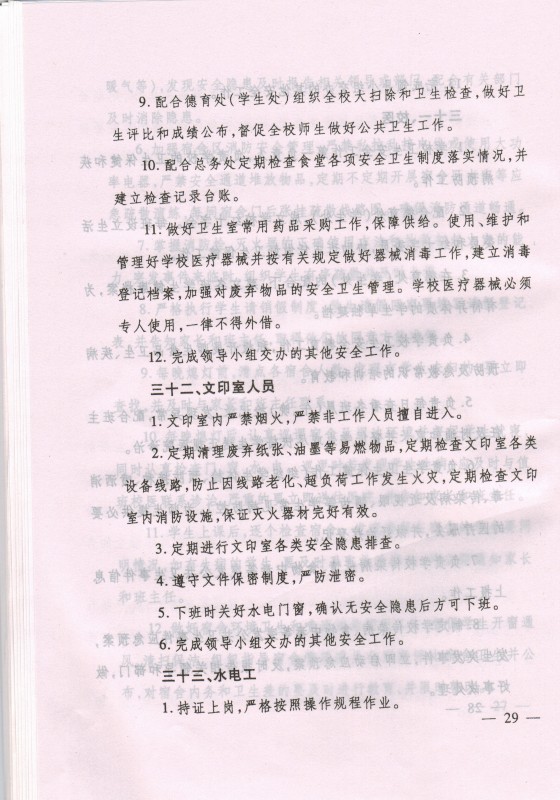 9. 配合德育处(学生处)组织全校大扫除和卫生检查，做好卫
生评比和成绩公布，督促全校师生做好公共卫生工作。
10. 配合总务处定期检查食堂各项安全卫生制度落实情况，并
建立检查记录台账。
11. 做好卫生室常用药品采购工作，保障供给。使用、维护和
管理好学校医疗器械并按有关规定做好器械消毒工作，建立消毒
登记档案，加强对废弃物品的安全卫生管理。学校医疗器械必须
专人使用，一律不得外借。
12. 完成领导小组交办的其他安全工作。
三十二、文印室人员
1. 文印室内严禁烟火，严禁非工作人员擅自进入。
2. 定期清理废弃纸张、油墨等易燃物品，定期检查文印室各类
设备线路，防止因线路老化、超负荷工作发生火灾，定期检查文印
室内消防设施，保证灭火器材完好有效。
3. 定期进行文印室各类安全隐患排查。
4. 遵守文件保密制度，严防泄密。
5. 下班时关好水电门窗，确认无安全隐患后方可下班。
6. 完成领导小组交办的其他安全工作。
三十三、水电工
1. 持证上岗，严格按照操作规程作业。
— 29 —